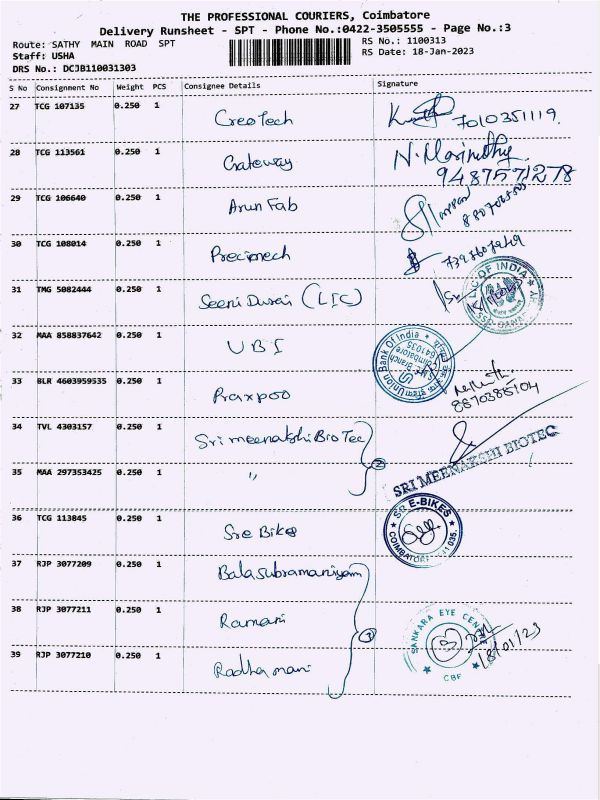 THE PROFESSIONAL COURIERS, Coimbatore
Delivery Runsheet - SPT - Phone No.:0422-3505555 - Page No.:3
Route: SATHY MAIN ROAD SPT
RS No.: 1100313
Staff: USHA
RS Date: 18-Jan-2023
DRS No.: DCJB110031303
S No Consignment No Weight PCS Consignee Details Signature
27 TCG 107135 0.250 1 CreoTech 7010351119.
28 TCG 113561 0.250 1 Gateway N. Marimuthu
9487571278
29 TCG 106640 0.250 1 Arun Fab
30 TCG 108014 0.250 1 Precimech
31 TMG 5082444 0.250 1 Seeni Durai (LIC) L.I.C OF INDIA
32 MAA 858837642 0.250 1 UBI Union Bank Of India Coimbatore 641035
33 BLR 4603959535 0.250 1 Praxpoo 8870385104
34 TVL 4303157 0.250 1 Sri meenakshi Bio Tec SRI MEENAKSHI BIOTEC
35 MAA 297353425 0.250 1 " 2
36 TCG 113845 0.250 1 Sre Bikes SR E-BIKES COIMBATORE
37 RJP 3077209 0.250 1 Balasubramaniyam
38 RJP 3077211 0.250 1 Ramani SANKARA EYE CENTRE CBE
18/01/23
39 RJP 3077210 0.250 1 Radhamani